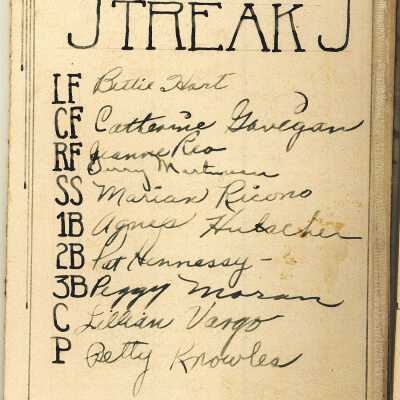 STREAKS
LF Bettie Hart
CF Catherine Gavegan
RF Jeanne Rio
Gerry Martinsen
SS Marian Ricono
1B Agnes Hutscher
2B Pat Hennessy -
3B Peggy Moran
C Lillian Vargo
P Betty Knowles